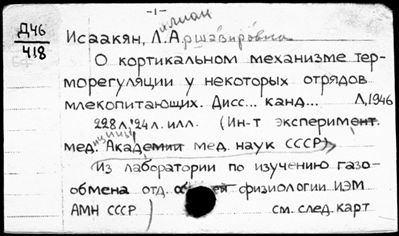 -1-
Д46
418
Исаакян, Л. Аршавировна
лиан
О кортикальном механизме тер-
морегуляции у некоторых отрядов
млекопитающих. Дисс... канд... Л, 1946
228 л. 24 л. илл. (Ин-т эксперимент.
мед. Академии мед. наук СССР)
Из лаборатории по изучению газо-
обмена отд. физиологии ИЭМ
АМН СССР) см. след. карт